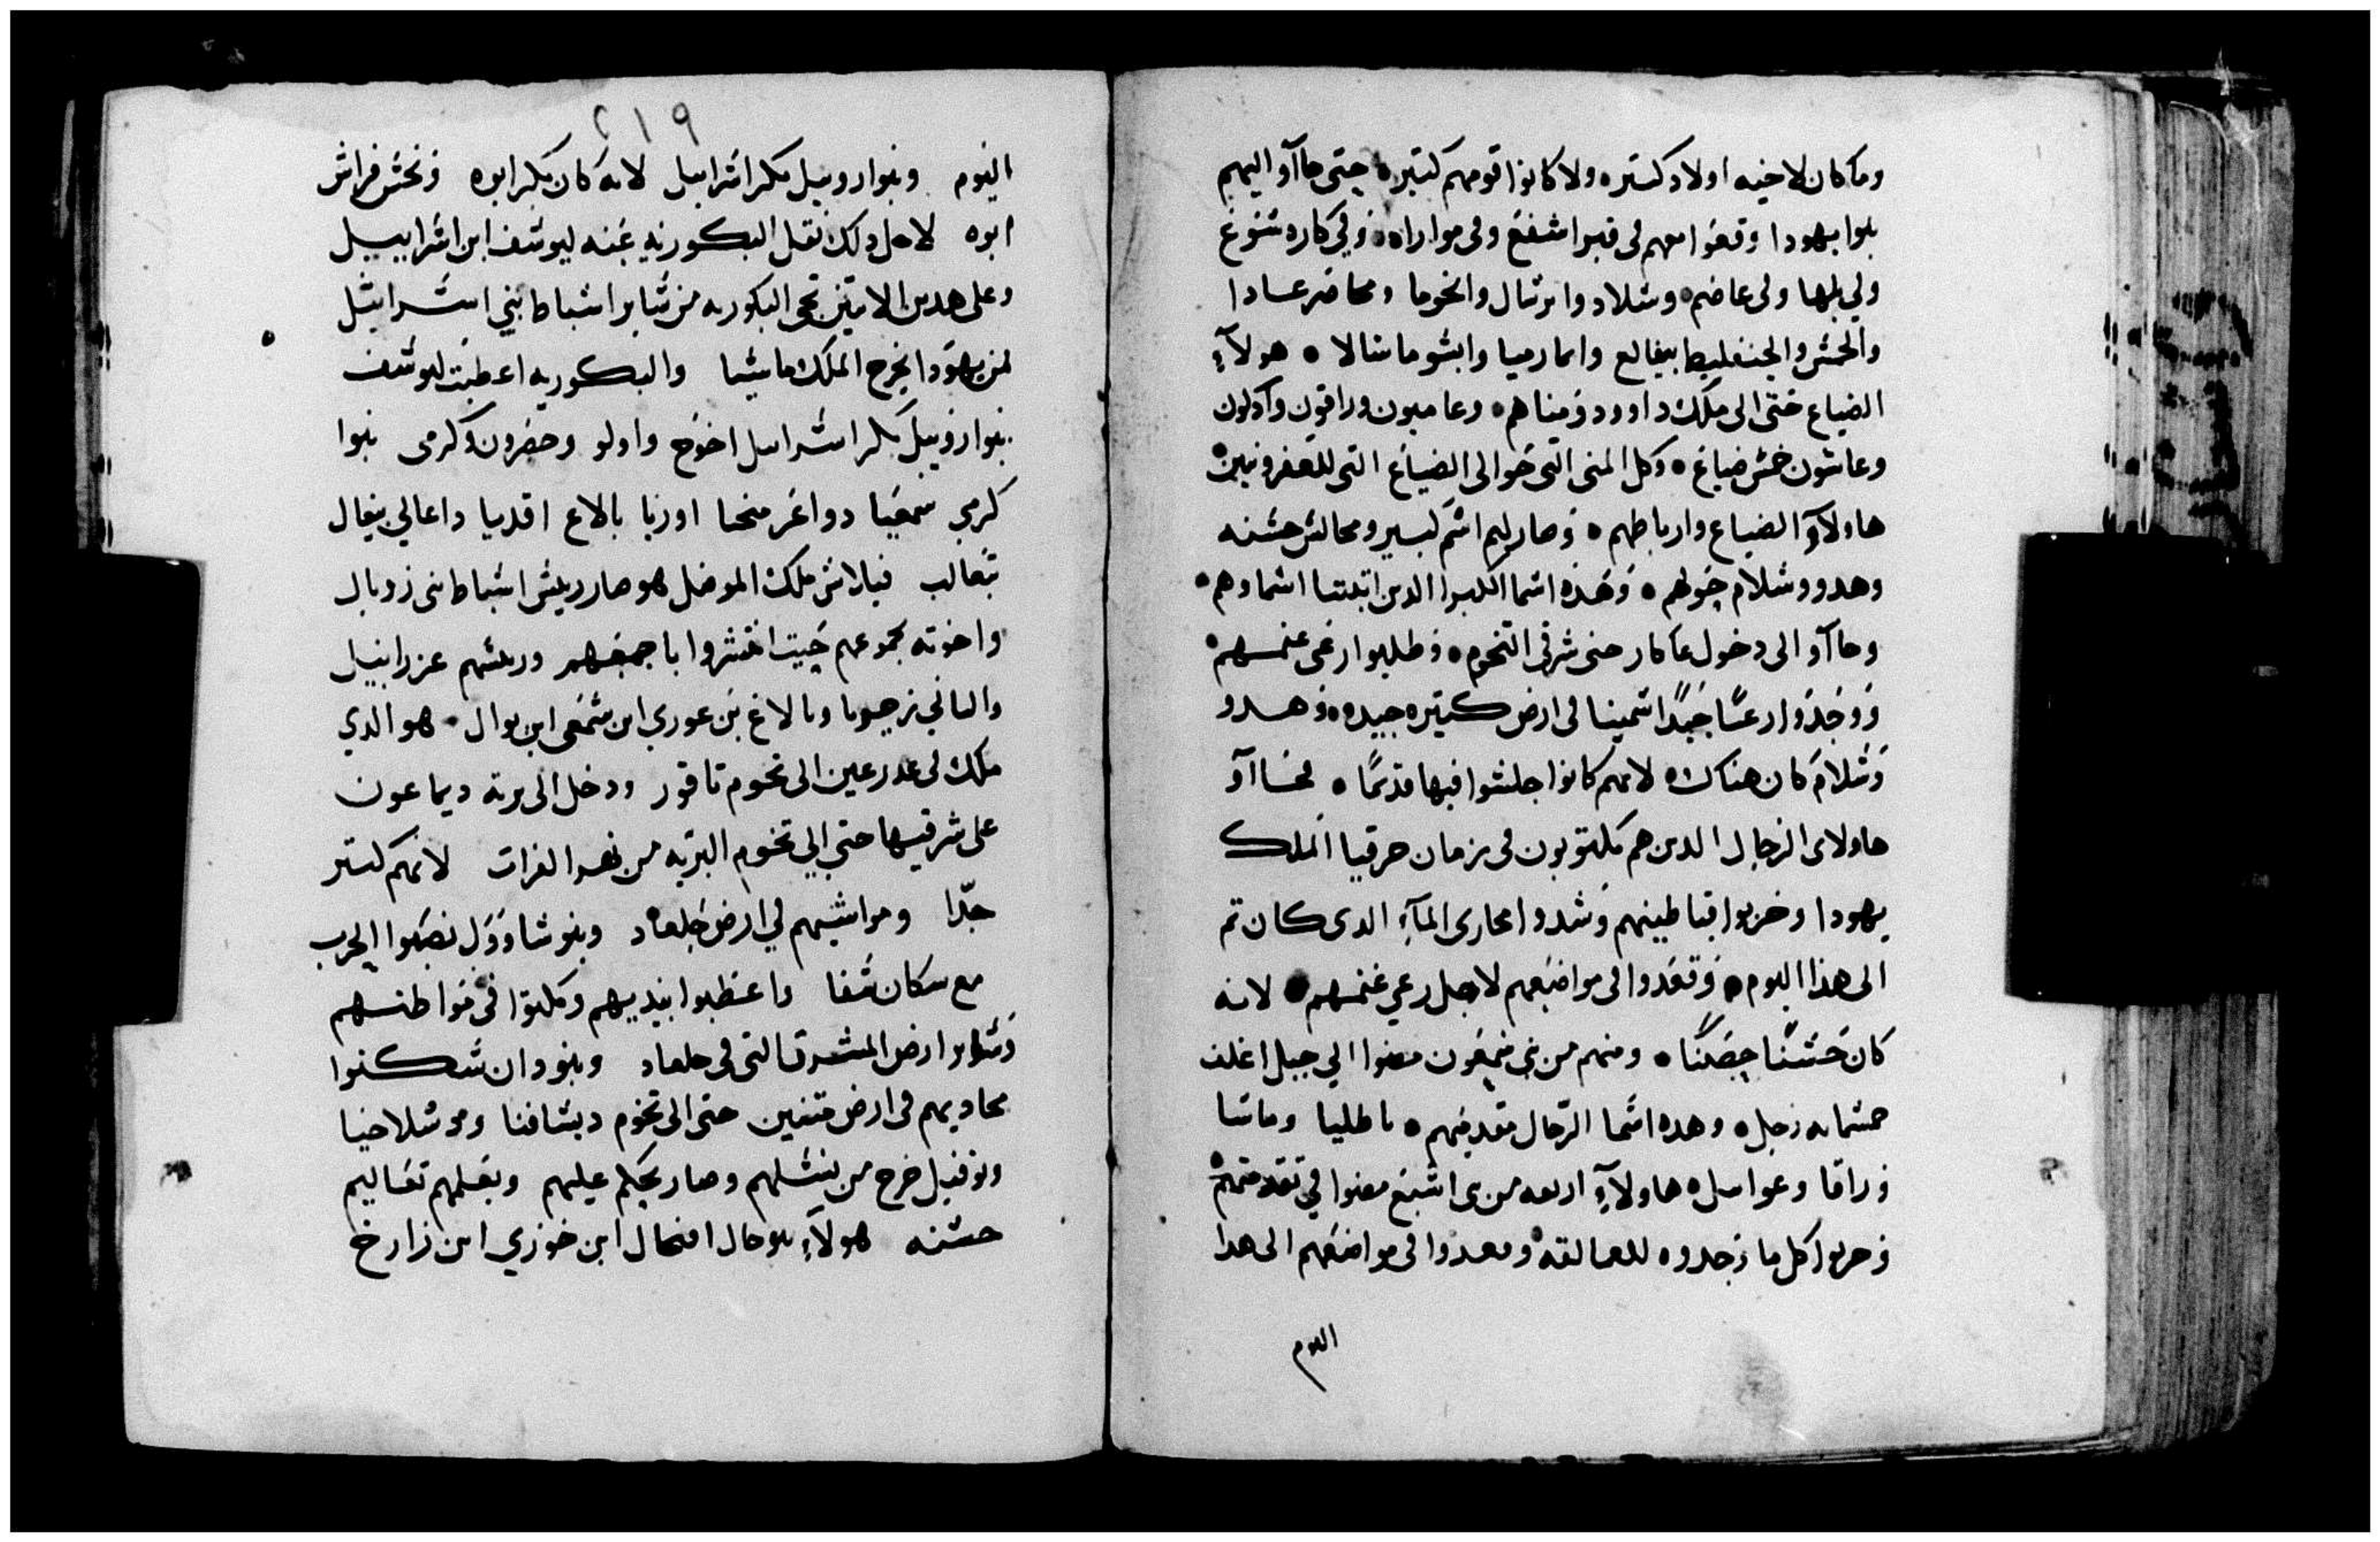 وما كان لاخيه اولاد كتيره ولا كانوا قومهم كتيره حتى جاآو اليهم
بنوا يهودا وقعوا معهم فى قبوا شفع وفى مواراه وفي كاره شوع
وفي بلها وفى عاضم وشلاد وابرتال وانخوما ومحاضر عسادا
والخمش والجنفليط ببفالع وامارميا وابشوماشالا هولآءِ
الضياع حتى الى ملك داوود ومناهم وعاميون وراقون وآدلون
وعاشون خمش ضياع وكل المنى التى حوالى الضياع التى للعفرونيين
هاولآءِ الضياع وارباطهم وصار لهم اشم كبير ومجالش حشنه
وهدو وشلام حولهم وهذه اشما الكبرا الدين ابتدتنا اشماوهم
وجاآو الى دخول عاكار حتى شرقى التخوم وطلبوا رعى غنمهم
ووجدوا رعيًا جيدًا شمينا فى ارض كتيره جيده وهدو
وشلام كان هناك لانهم كانوا جلشوا فيها قديمًا فجاآو
هاولاى الرجال الدين هم مكتوبون فى زمان حزقيا الملك
يهودا وخربوا قباطينهم وشدوا مجارى المآءِ الدى كان تم
الى هذا اليوم وقعدوا فى مواضعهم لاجل رعي غنمهم لانه
كان حشنًا حصكنًا ومنهم من بني شمعون مضوا الي جبل اغلف
خمشمايه رجل وهده اشما الرجال مقدميهم باطليا وماشا
وراقا وعواسل هاولآءِ اربعه من بنى اشبع مضوا في تقدمتهم
وخربوا كل ما وجدوه للعمالقه وقعدوا فى مواضعهم الى هدا
اليوم
٢١٩
اليوم وبنوا روبيل بكر اشراييل لانه كان بكر ابوه ونجش فراش
ابوه لاجل دلك نقل البكوريه عنه ليوشف ابن اشراييل
وعلى هدين الاتنين تجى البكوريه من شاير اشباط بني اشراييل
لمن يهودا يخرج الملك ماشيا والبكوريه اعطيت ليوشف
بنوا روبيل بكر اشراييل اخنوح واولو وحضرون وكرمى بنوا
كرمي شمعيا دواغر منحا اوزيا بالاع اقديا داعالي بنعال
تعالب فبلاش ملك الموصل هو صار رييش اشباط بنى زوبال
واخوته بجموعهم حيت انتشروا باجمعهم ورييشهم عزراييل
والتاني زجيوما وبالاع بن عوري ابن شمعى ابن يوال هو الدي
ملك فى عدرعين الى تخوم تاقور ودخل الى برية ديماعون
على شرقيها حتى الي تخوم البريه من نهر الفرات لانهم كتير
جدّا ومواشيهم في ارض جلعاد وبنو شاوول نصبوا الحرب
مع سكان شفا واعطبوا بيديهم وملكوا فى مواطنهم
وشاير ارض المشرق التى فى جلعاد وبنو دان شكنوا
محاديهم فى ارض متنين حتى الى تخوم ديشافنا وموشلاخيا
ونوفيل خرج من نشلهم وصار يحكم عليهم ويعلمهم تعاليم
حشنه هولآءِ بنو حال افنحال ابن خوزي ابن زارخ